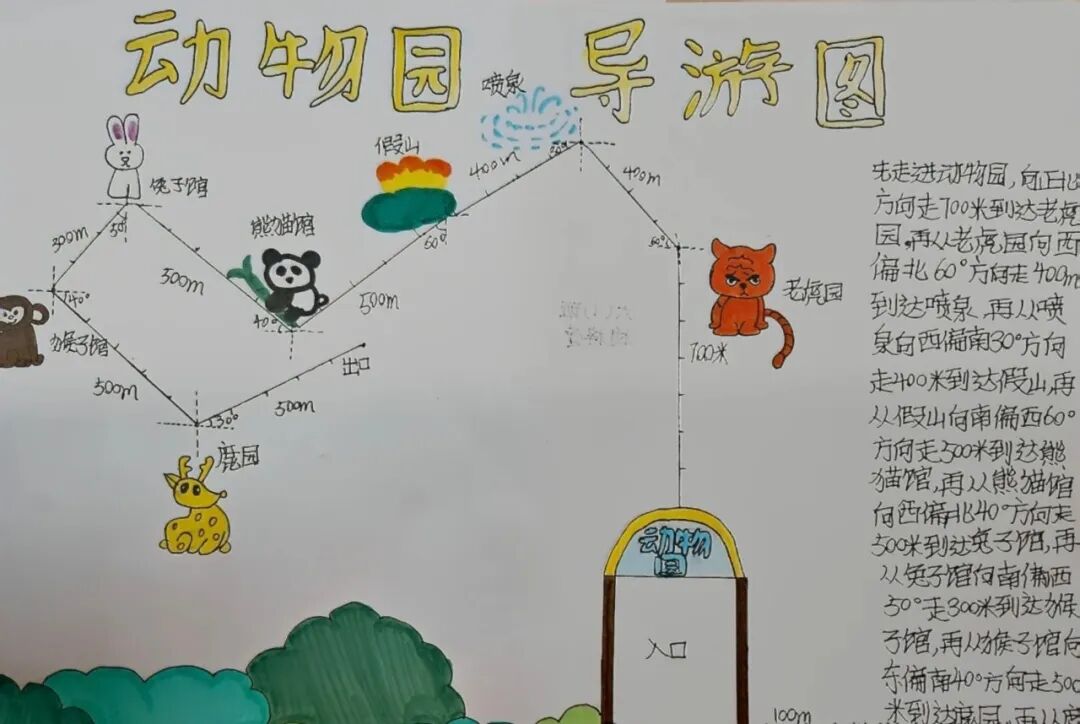 动物园 导游图
喷泉
假山
400m
400m
兔子馆
50°
熊猫馆
300m
60°
60°
500m
500m
老虎园
40°
40°
猴子馆
700米
出口
500m
500m
30°
鹿园
动物
园
入口
100m
先走进动物园,向正北
方向走700米到达老虎
园。再从老虎园向西
偏北60°方向走400m
到达喷泉,再从喷
泉向西偏南30°方向
走400米到达假山,再
从假山向南偏西60°
方向走500米到达熊
猫馆,再从熊猫馆
向西偏北40°方向走
500米到达兔子馆,再
从兔子馆向南偏西
50°走300米到达猴
子馆,再从猴子馆向
东偏南40°方向走500
米到达鹿园,再从